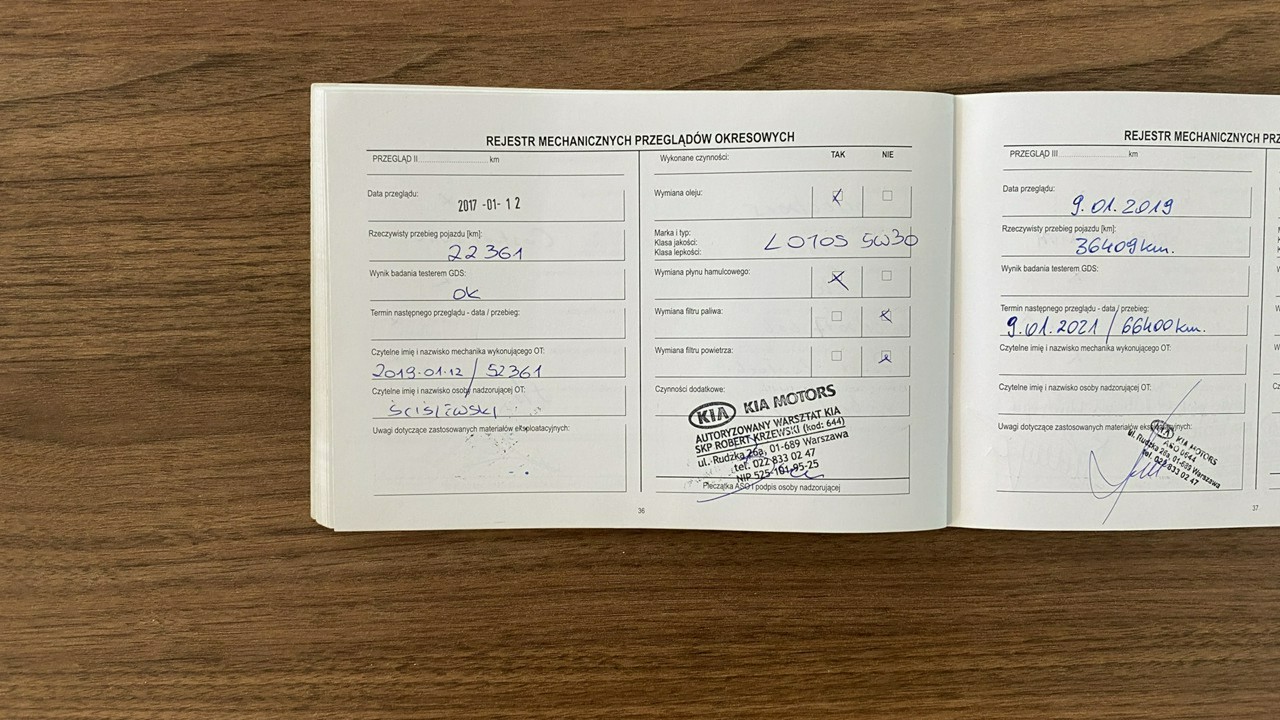 REJESTR MECHANICZNYCH PRZEGLĄDÓW OKRESOWYCH
PRZEGLĄD II.................... km
Data przeglądu:
2017 -01- 12
Rzeczywisty przebieg pojazdu [km]:
22361
Wynik badania testerem GDS:
ok
Termin następnego przeglądu - data / przebieg:
Czytelne imię i nazwisko mechanika wykonującego OT:
2019.01.12 / 52361
Czytelne imię i nazwisko osoby nadzorującej OT:
Uwagi dotyczące zastosowanych materiałów eksploatacyjnych:
Wykonane czynności: TAK NIE
Wymiana oleju:
Marka i typ:
Klasa jakości:
Klasa lepkości:
LOTOS 5W30
Wymiana płynu hamulcowego:
Wymiana filtru paliwa:
Wymiana filtru powietrza:
Czynności dodatkowe:
KIA KIA MOTORS
AUTORYZOWANY WARSZTAT KIA
SKP ROBERT KRZEWSKI (kod: 644)
ul. Rudzka 26a, 01-689 Warszawa
tel. 022 833 02 47
NIP 525-101-95-25
Pieczątka ASO i podpis osoby nadzorującej
36
REJESTR MECHANICZNYCH PRZ
PRZEGLĄD III.................... km
Data przeglądu:
9.01.2019
Rzeczywisty przebieg pojazdu [km]:
36409 km.
Wynik badania testerem GDS:
Termin następnego przeglądu - data / przebieg:
9.01.2021 / 66400 km.
Czytelne imię i nazwisko mechanika wykonującego OT:
Czytelne imię i nazwisko osoby nadzorującej OT:
Uwagi dotyczące zastosowanych materiałów eksploatacyjnych:
KIA MOTORS
ASO 0644
ul. Rudzka 26a, 01-689 Warszawa
tel. 022 833 02 47
37